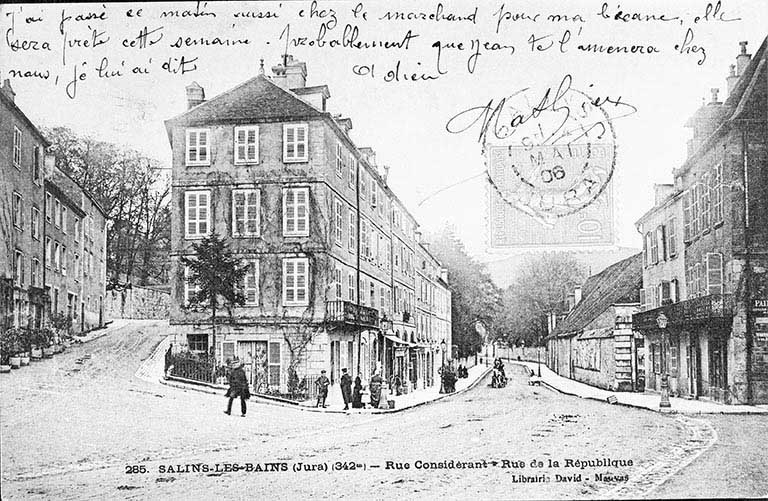 J'ai passé ce matin aussi chez le marchand pour ma bécane, elle
sera prête cette semaine. probablement que Jean te l'amènera chez
nous, je lui ai dit Adieu
Mathieu
MAI
06
JURA
10
PAIN
285. SALINS-LES-BAINS (Jura) (342m) — Rue Considérant - Rue de la République
Librairie David - Mauvas